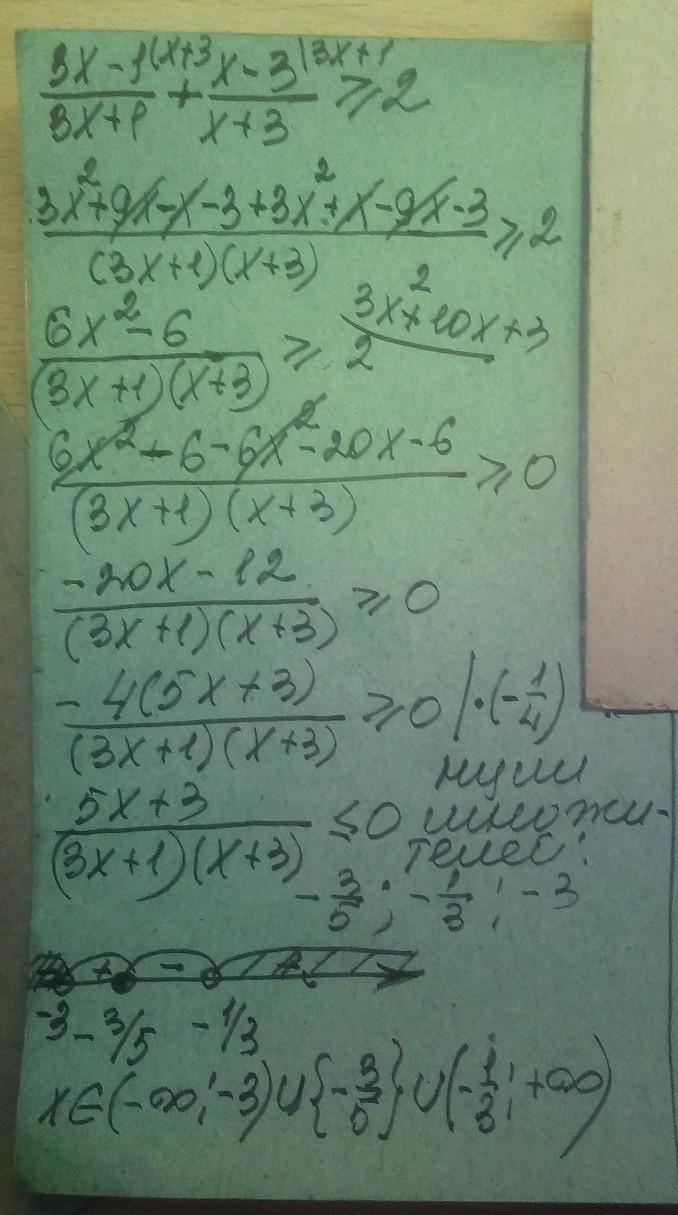 (3x-1)/(3x+1) |x+3 + (x-3)/(x+3) |3x+1 ≥ 2
(3x²+9x-x-3+3x²+x-9x-3)/((3x+1)(x+3)) ≥ 2
(6x²-6)/((3x+1)(x+3)) ≥ 2
3x²+10x+3
(6x²-6-6x²-20x-6)/((3x+1)(x+3)) ≥ 0
(-20x-12)/((3x+1)(x+3)) ≥ 0
(-4(5x+3))/((3x+1)(x+3)) ≥ 0 |·(-1/4)
(5x+3)/((3x+1)(x+3)) ≤ 0
нули
множи-
телей:
-3/5; -1/3; -3
+ - +
-3 -3/5 -1/3
x∈(-∞;-3)∪{-3/5}∪(-1/3;+∞)